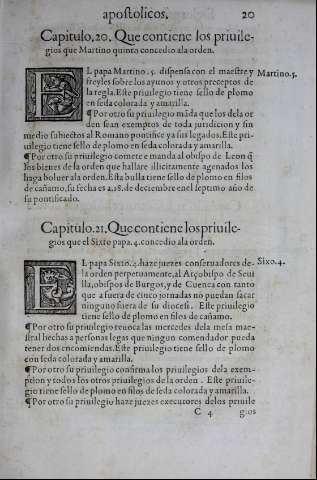 apostolicos. 20
Capitulo.20. Que contiene los priuile-
gios que Martino quinto concedio ala orden.
EL papa Martino .5. dispensa con el maestre y Martino.5.
freyles sobre los ayunos y otros preceptos de
la regla. Este priuilegio tiene sello de plomo
en seda colorada y amarilla.
¶Por otro su priuilegio mãda que los dela or
den sean exemptos de toda juridicion y sin
medio subiectos al Romano pontifice ya sus legados. Este pri-
uilegio tiene sello de plomo en seda colorada y amarilla.
¶Por otro su priuilegio comete e manda al obispo de Leon q̃
los bienes de la orden que hallare illicitamente agenados los
haga boluer ala orden. Esta bulla tiene sello de plomo en filos
de cañamo, su fecha es a.18. de deciembre en el septimo año de
su pontificado.
Capitulo.21. Que contiene los priuile-
gios que el Sixto papa.4. concedio ala orden.
EL papa Sixto.4. haze juezes conseruadores de Sixo.4.
la orden perpetuamente, al Arçobispo de Seui
lla, obispos de Burgos, y de Cuenca con tanto
que a fuera de cinco jornadas no puedan sacar
ninguno fuera de su diocesi. Este priuilegio
tiene sello de plomo en filos de cañamo.
¶Por otro su priuilegio reuoca las mercedes dela mesa mae-
stral hechas a personas legas que ningun comendador pueda
tener dos encomiendas. Este priuilegio tiene sello de plomo
con seda colorada y amarilla.
¶Por otro su priuilegio confirma los priuilegios dela exem-
pcion y todos los otros priuilegios de la orden. Este priuile-
gio tiene sello de plomo en filos de seda colorada y amarilla.
¶Por otro su priuilegio haze juezes executores delos priuile
C 4 gios